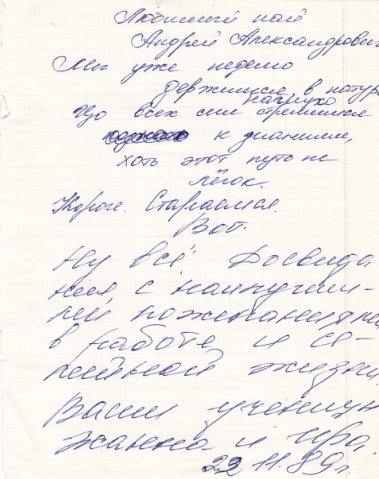 Любимый наш
Андрей Александрович
Мы уже неделю
держимся в натуре
Изо всех сил стремимся
к знаниям,
хоть этот путь не
лёгок.
Короче. Стараемся.
Вот.
Ну всё. Досвида
ния, с наилучши-
ми пожеланиями
в работе и се-
мейной жизни
Ваши учениц
Жанна и Ира
22 11.89г.